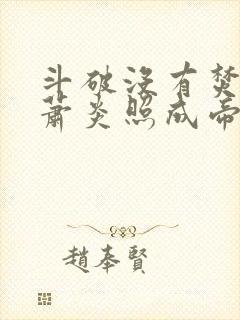 斗破没有焚
萧炎照成帝
趙奉賢